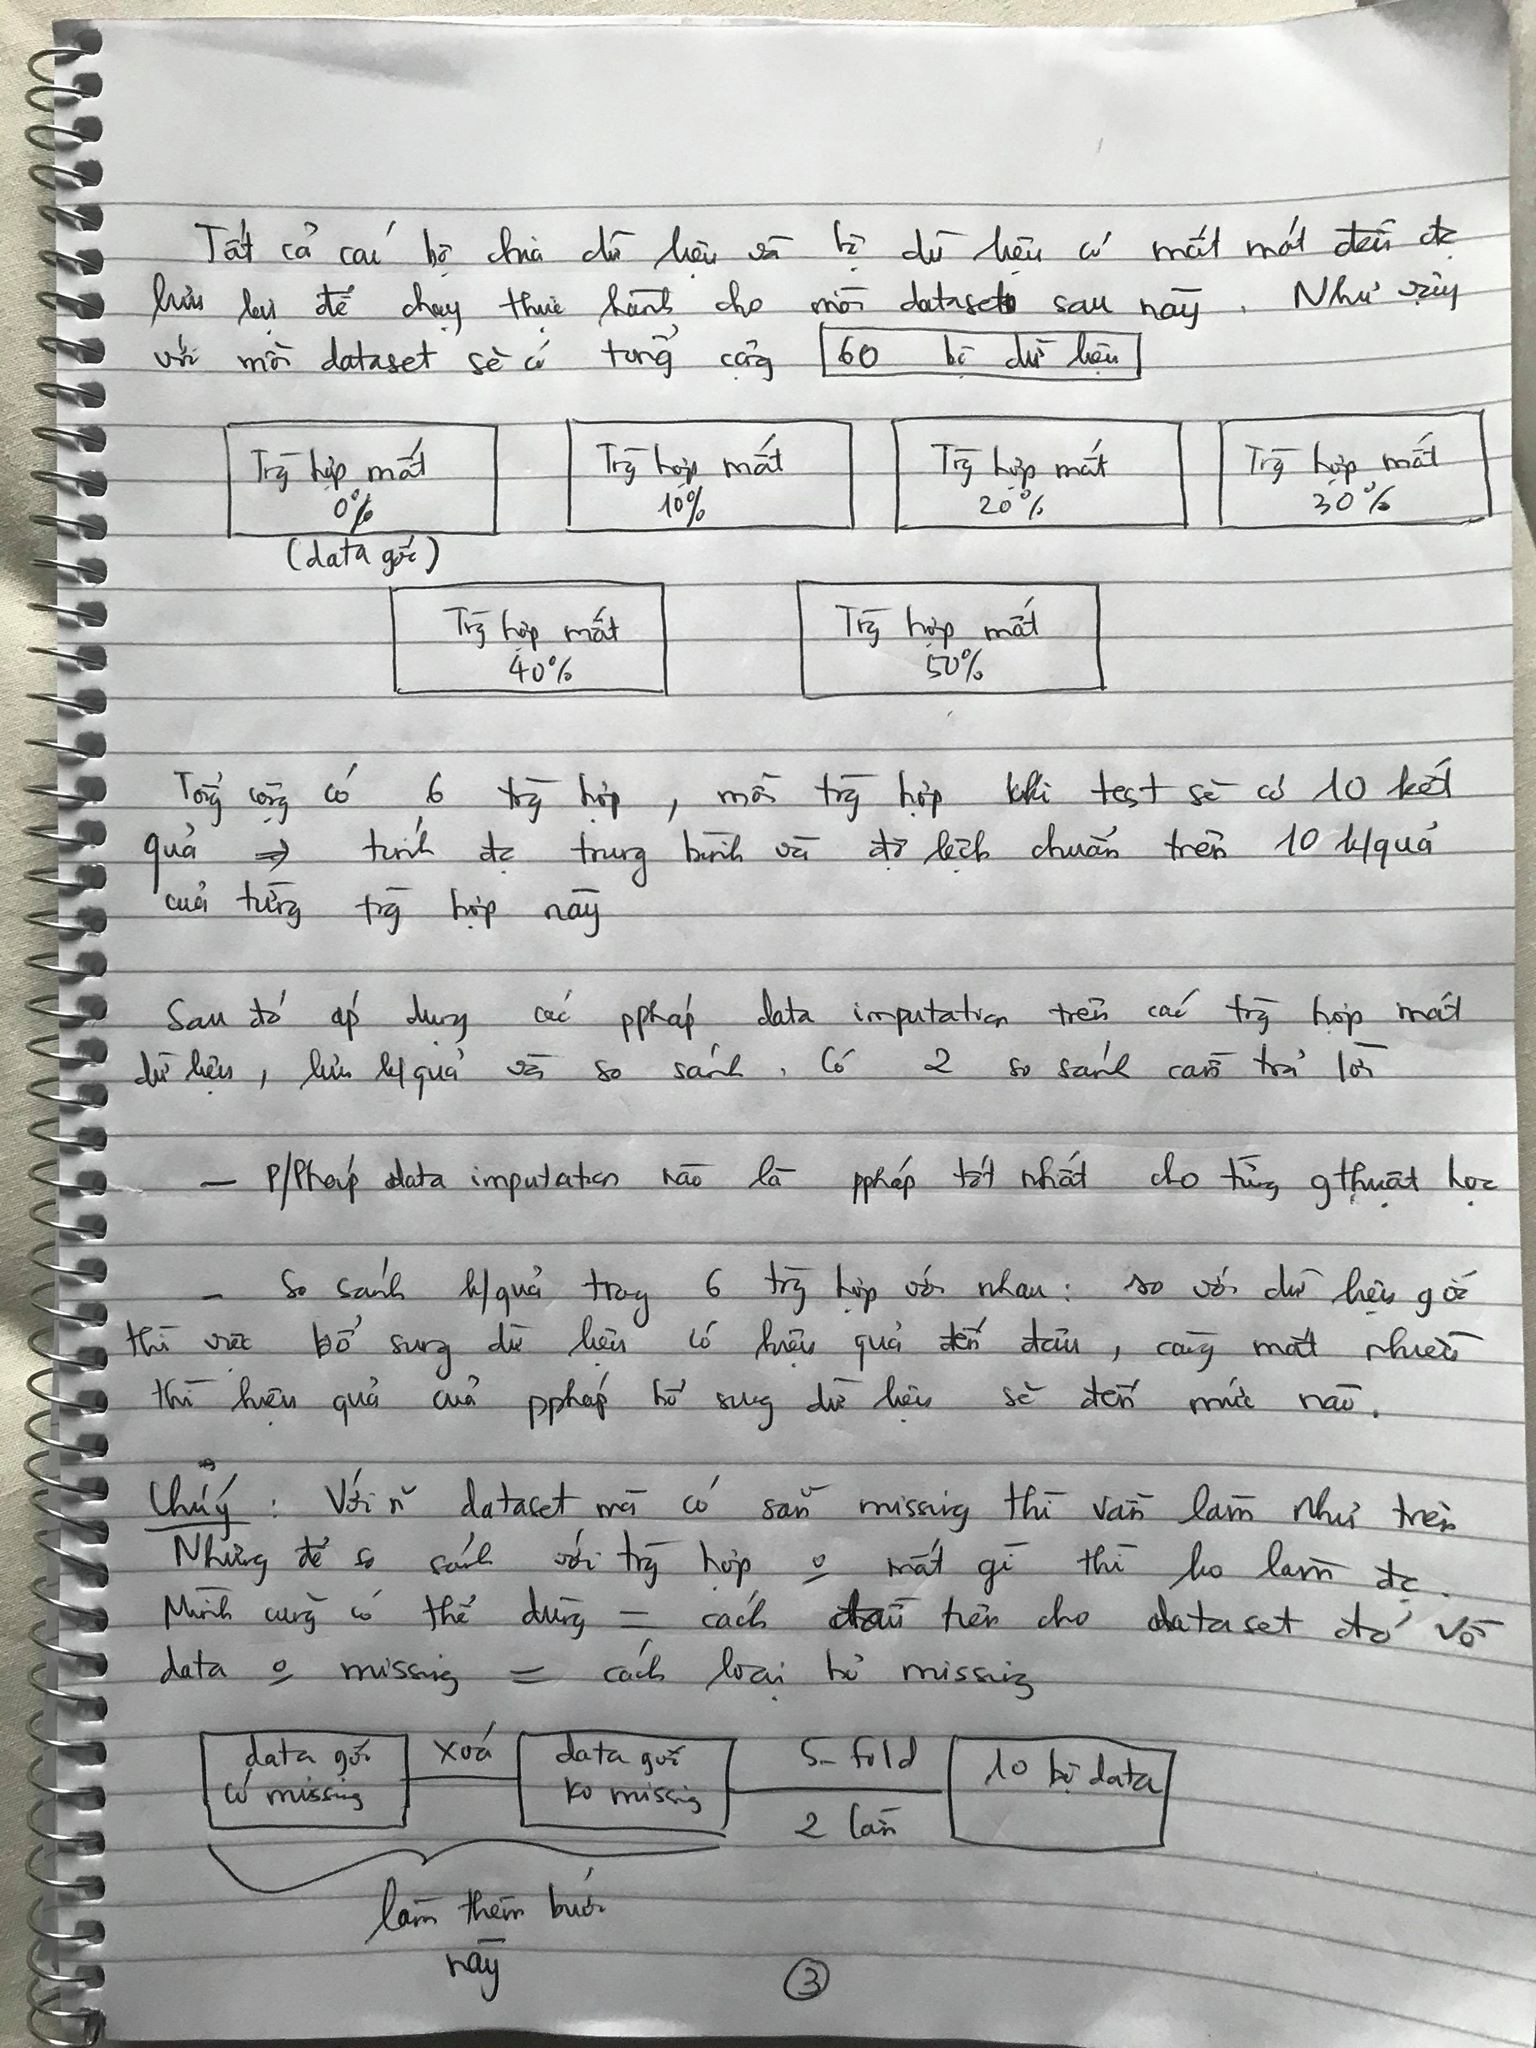 Tất cả các bộ chia dữ liệu và bộ dữ liệu có mất mát đều đc
lưu lại để chạy thực hành cho mỗi dataset sau này. Như vậy
với mỗi dataset sẽ có tổng cộng 60 bộ dữ liệu
Trg hợp mất 0%
(data gốc)
Trg hợp mất 10%
Trg hợp mất 20%
Trg hợp mất 30%
Trg hợp mất 40%
Trg hợp mất 50%
Tổng cộng có 6 trg hợp, mỗi trg hợp khi test sẽ có 10 kết
quả ⇒ tính đc trung bình và độ lệch chuẩn trên 10 k/quả
của từng trg hợp này
Sau đó áp dụng các ppháp data imputation trên các trg hợp mất
dữ liệu, lưu k/quả và so sánh. Có 2 so sánh cần trả lời
- P/Pháp data imputation nào là ppháp tốt nhất cho từng gthuật học
- So sánh k/quả trog 6 trg hợp với nhau: so với dữ liệu gốc
thì việc bổ sung dữ liệu có hiệu quả đến đâu, càng mất nhiều
thì hiệu quả của ppháp bổ sung dữ liệu sẽ đến mức nào.
Chú ý: Với n~ dataset mà có sẵn missing thì vẫn làm như trên
Nhưng để so sánh với trg hợp o mất gì thì ko làm đc.
Mình cũng có thể dùng = cách đầu tiên cho dataset đó với
data o missing = cách loại bỏ missing
data gốc có missing
Xoá
data gốc ko missing
5-fold
2 lần
10 bộ data
làm thêm bước
này
3